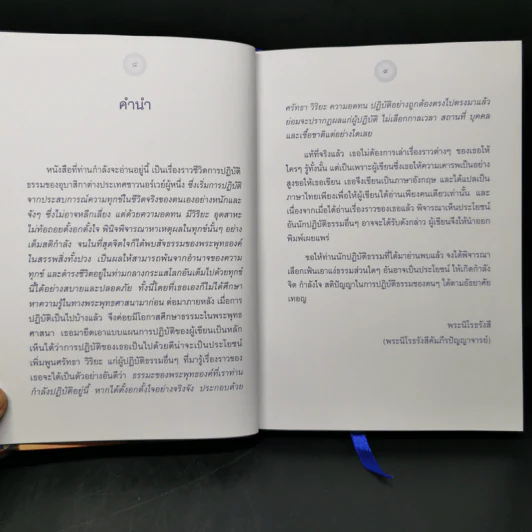 ๘
คำนำ
หนังสือที่ท่านกำลังจะอ่านอยู่นี้ เป็นเรื่องราวชีวิตการปฏิบัติ
ธรรมของอุบาสิกาต่างประเทศชาวนอร์เวย์ผู้หนึ่ง ซึ่งเริ่มการปฏิบัติ
จากประสบการณ์ความทุกข์ในชีวิตจริงของตนเองอย่างหนักและ
จังๆ ซึ่งไม่อาจหลีกเลี่ยง แต่ด้วยความอดทน มีวิริยะ อุตสาหะ
ไม่ท้อถอยตั้งอกตั้งใจ พินิจพิจารณาหาเหตุผลในทุกข์นั้นๆ อย่าง
เต็มสติกำลัง จนในที่สุดจิตใจก็ได้พบสัจธรรมของพระพุทธองค์
ในสรรพสิ่งทั้งปวง เป็นผลให้สามารถพ้นจากอำนาจของความ
ทุกข์ และดำรงชีวิตอยู่ในท่ามกลางกระแสโลกอันเต็มไปด้วยทุกข์
นี้ได้อย่างสบายและปลอดภัย ทั้งนี้โดยที่เธอเองก็ไม่ได้ศึกษา
หาความรู้ในทางพระพุทธศาสนามาก่อน ต่อมาภายหลัง เมื่อการ
ปฏิบัติเป็นไปบ้างแล้ว จึงค่อยมีโอกาสศึกษาธรรมะในพระพุทธ
ศาสนา เธอมายึดเอาแบบแผนการปฏิบัติของผู้เขียนเป็นหลัก
เห็นได้ว่าการปฏิบัติของเธอเป็นไปด้วยดีน่าจะเป็นประโยชน์
เพิ่มพูนศรัทธา วิริยะ แก่ผู้ปฏิบัติธรรมอื่นๆ ที่มารู้เรื่องราวของ
เธอจะได้เป็นตัวอย่างอันดีว่า ธรรมะของพระพุทธองค์ที่เราท่าน
กำลังปฏิบัติอยู่นี้ หากได้ตั้งอกตั้งใจอย่างจริงจัง ประกอบด้วย
๙
ศรัทธา วิริยะ ความอดทน ปฏิบัติอย่างถูกต้องตรงไปตรงมาแล้ว
ย่อมจะปรากฏผลแก่ผู้ปฏิบัติ ไม่เลือกกาลเวลา สถานที่ บุคคล
และเชื้อชาติแต่อย่างใดเลย
แท้ที่จริงแล้ว เธอไม่ต้องการเล่าเรื่องราวต่างๆ ของเธอให้
ใครๆ รู้ทั้งนั้น แต่เป็นเพราะผู้เขียนซึ่งเธอให้ความเคารพเป็นอย่าง
สูงขอให้เธอเขียน เธอจึงเขียนเป็นภาษาอังกฤษ และได้แปลเป็น
ภาษาไทยเพียงเพื่อให้ผู้เขียนได้อ่านเพียงคนเดียวเท่านั้น และ
เนื่องจากเมื่อได้อ่านเรื่องราวของเธอแล้ว พิจารณาเห็นประโยชน์
อันนักปฏิบัติธรรมอื่นๆ อาจจะได้รับดังกล่าว ผู้เขียนจึงให้นำออก
พิมพ์เผยแพร่
ขอให้ท่านนักปฏิบัติธรรมที่ได้มาอ่านพบแล้ว จงได้พิจารณา
เลือกเฟ้นเอาแง่ธรรมส่วนใดๆ อันอาจเป็นประโยชน์ ให้เกิดกำลัง
จิต กำลังใจ สติปัญญาในการปฏิบัติธรรมของตนๆ ได้ตามอัธยาศัย
เทอญ
พระนิโรธรังสี
(พระนิโรธรังสีคัมภีรปัญญาจารย์)